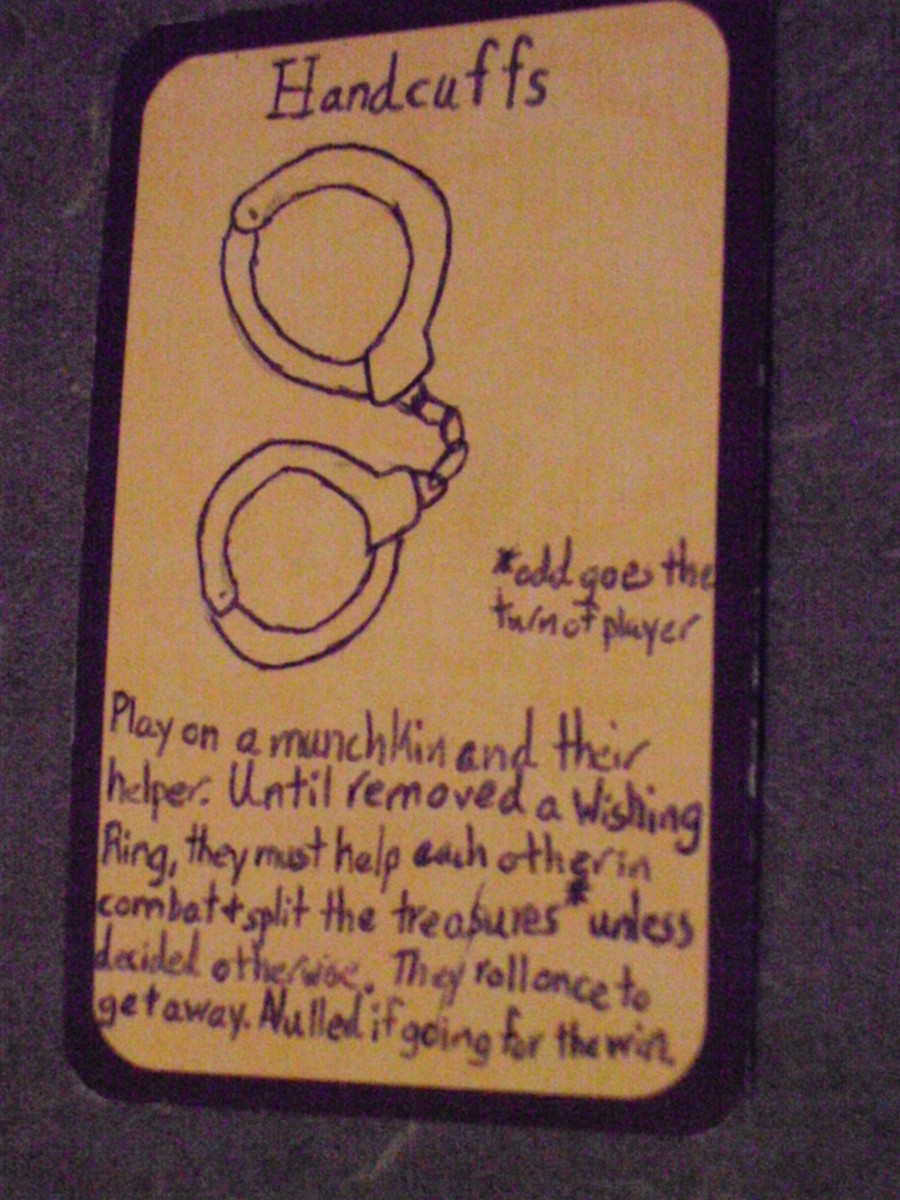 Handcuffs
*odd goes the
turn of player
Play on a munchkin and their
helper. Until removed a Wishing
Ring, they must help each other in
combat + split the treasures* unless
decided otherwise. They roll once to
get away. Nulled if going for the win.